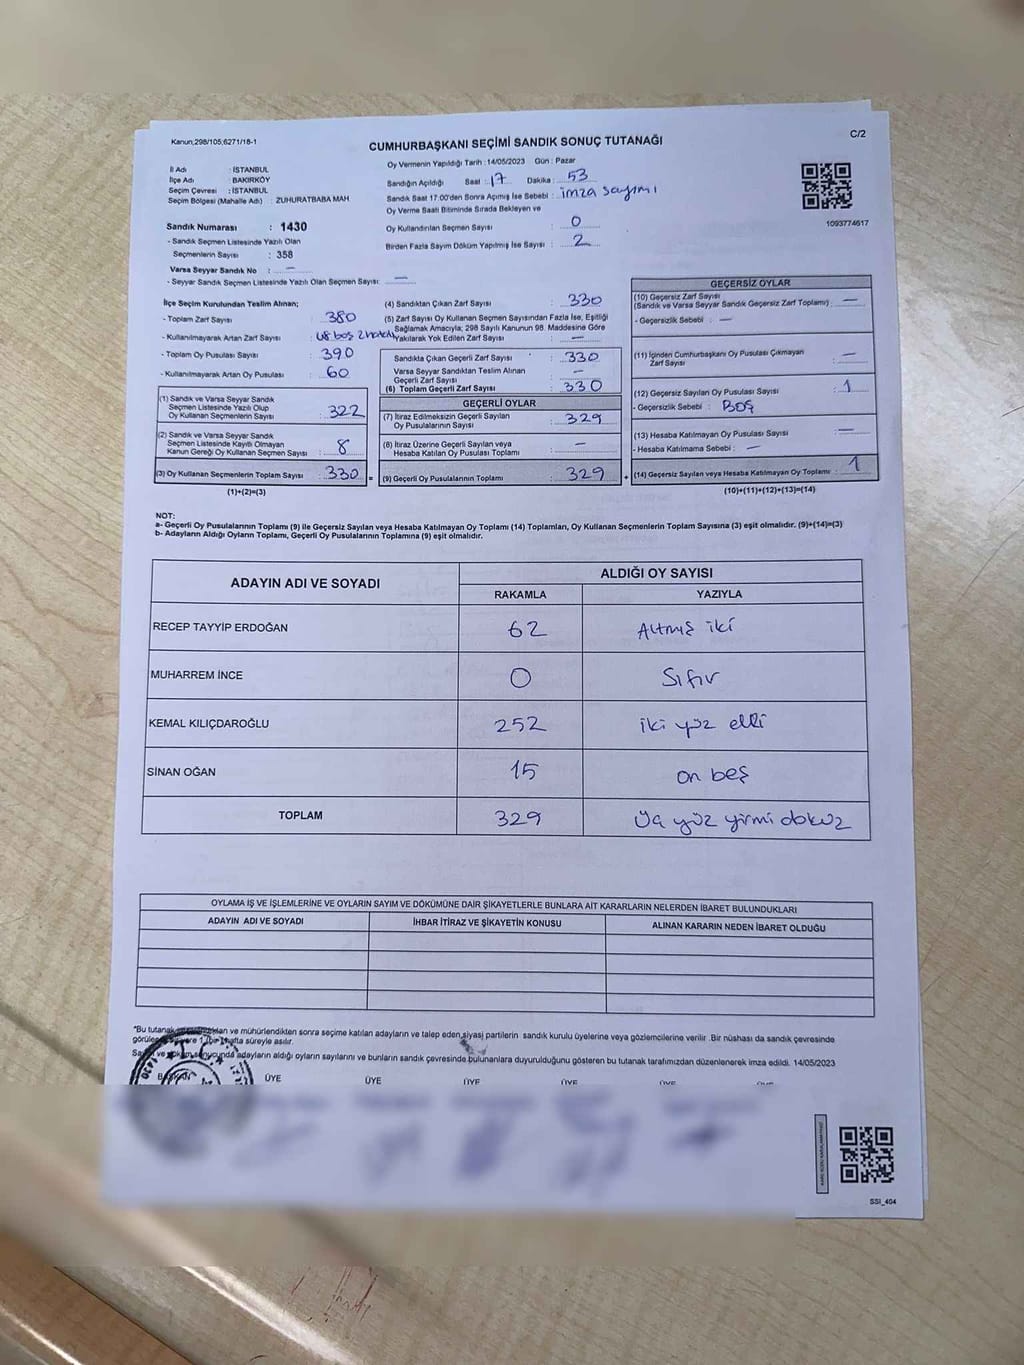 Kanun;298/105;6271/18-1
C/2
CUMHURBAŞKANI SEÇİMİ SANDIK SONUÇ TUTANAĞI
İl Adı : İSTANBUL
İlçe Adı : BAKIRKÖY
Seçim Çevresi : İSTANBUL
Seçim Bölgesi (Mahalle Adı) : ZUHURATBABA MAH
Sandık Numarası : 1430
- Sandık Seçmen Listesinde Yazılı Olan
Seçmenlerin Sayısı : 358
Varsa Seyyar Sandık No : —
- Seyyar Sandık Seçmen Listesinde Yazılı Olan Seçmen Sayısı: —
Oy Vermenin Yapıldığı Tarih :14/05/2023 Gün : Pazar
Sandığın Açıldığı Saat : 17 Dakika : 53
Sandık Saat 17:00'den Sonra Açımış İse Sebebi : imza sayımı
Oy Verme Saati Bitiminde Sırada Bekleyen ve
Oy Kullandırılan Seçmen Sayısı : 0
Birden Fazla Sayım Döküm Yapılmış İse Sayısı : 2
1093774617
İlçe Seçim Kurulundan Teslim Alınan;
- Toplam Zarf Sayısı : 380
- Kullanılmayarak Artan Zarf Sayısı : 48 boş 2 hatalı
- Toplam Oy Pusulası Sayısı : 390
- Kullanılmayarak Artan Oy Pusulası : 60
(1) Sandık ve Varsa Seyyar Sandık
Seçmen Listesinde Yazılı Olup
Oy Kullanan Seçmenlerin Sayısı : 322
(2) Sandık ve Varsa Seyyar Sandık
Seçmen Listesinde Kayıtlı Olmayan
Kanun Gereği Oy Kullanan Seçmen Sayısı : 8
(3) Oy Kullanan Seçmenlerin Toplam Sayısı : 330
(1)+(2)=(3)
(4) Sandıktan Çıkan Zarf Sayısı : 330
(5) Zarf Sayısı Oy Kullanan Seçmen Sayısından Fazla İse, Eşitliği
Sağlamak Amacıyla; 298 Sayılı Kanunun 98. Maddesine Göre
Yakılarak Yok Edilen Zarf Sayısı : —
Sandıkta Çıkan Geçerli Zarf Sayısı : 330
Varsa Seyyar Sandıktan Teslim Alınan
Geçerli Zarf Sayısı : —
(6) Toplam Geçerli Zarf Sayısı : 330
GEÇERLİ OYLAR
(7) İtiraz Edilmeksizin Geçerli Sayılan
Oy Pusulalarının Sayısı : 329
(8) İtiraz Üzerine Geçerli Sayılan veya
Hesaba Katılan Oy Pusulası Toplamı : —
= (9) Geçerli Oy Pusulalarının Toplamı : 329 +
GEÇERSİZ OYLAR
(10) Geçersiz Zarf Sayısı
(Sandık ve Varsa Seyyar Sandık Geçersiz Zarf Toplamı) : —
- Geçersizlik Sebebi : —
(11) İçinden Cumhurbaşkanı Oy Pusulası Çıkmayan
Zarf Sayısı : —
(12) Geçersiz Sayılan Oy Pusulası Sayısı : 1
- Geçersizlik Sebebi : BOŞ
(13) Hesaba Katılmayan Oy Pusulası Sayısı : —
- Hesaba Katılmama Sebebi : —
(14) Geçersiz Sayılan veya Hesaba Katılmayan Oy Toplamı : 1
(10)+(11)+(12)+(13)=(14)
NOT:
a- Geçerli Oy Pusulalarının Toplamı (9) ile Geçersiz Sayılan veya Hesaba Katılmayan Oy Toplamı (14) Toplamları, Oy Kullanan Seçmenlerin Toplam Sayısına (3) eşit olmalıdır. (9)+(14)=(3)
b- Adayların Aldığı Oyların Toplamı, Geçerli Oy Pusulalarının Toplamına (9) eşit olmalıdır.
ADAYIN ADI VE SOYADI
ALDIĞI OY SAYISI
RAKAMLA YAZIYLA
RECEP TAYYİP ERDOĞAN 62 Altmış iki
MUHARREM İNCE 0 Sıfır
KEMAL KILIÇDAROĞLU 252 iki yüz elli
SİNAN OĞAN 15 on beş
TOPLAM 329 Üç yüz yirmi dokuz
OYLAMA İŞ VE İŞLEMLERİNE VE OYLARIN SAYIM VE DÖKÜMÜNE DAİR ŞİKAYETLERLE BUNLARA AİT KARARLARIN NELERDEN İBARET BULUNDUKLARI
ADAYIN ADI VE SOYADI İHBAR İTİRAZ VE ŞİKAYETİN KONUSU ALINAN KARARIN NEDEN İBARET OLDUĞU
*Bu tutanak ve mühürlendikten sonra seçime katılan adayların ve talep eden siyasi partilerin sandık kurulu üyelerine veya gözlemcilerine verilir .Bir nüshası da sandık çevresinde
hafta süreyle asılır.
adayların aldığı oyların sayılarını ve bunların sandık çevresinde bulunanlara duyurulduğunu gösteren bu tutanak tarafımızdan düzenlenerek imza edildi. 14/05/2023
BAŞKAN ÜYE ÜYE ÜYE ÜYE ÜYE ÜYE
SSI_404